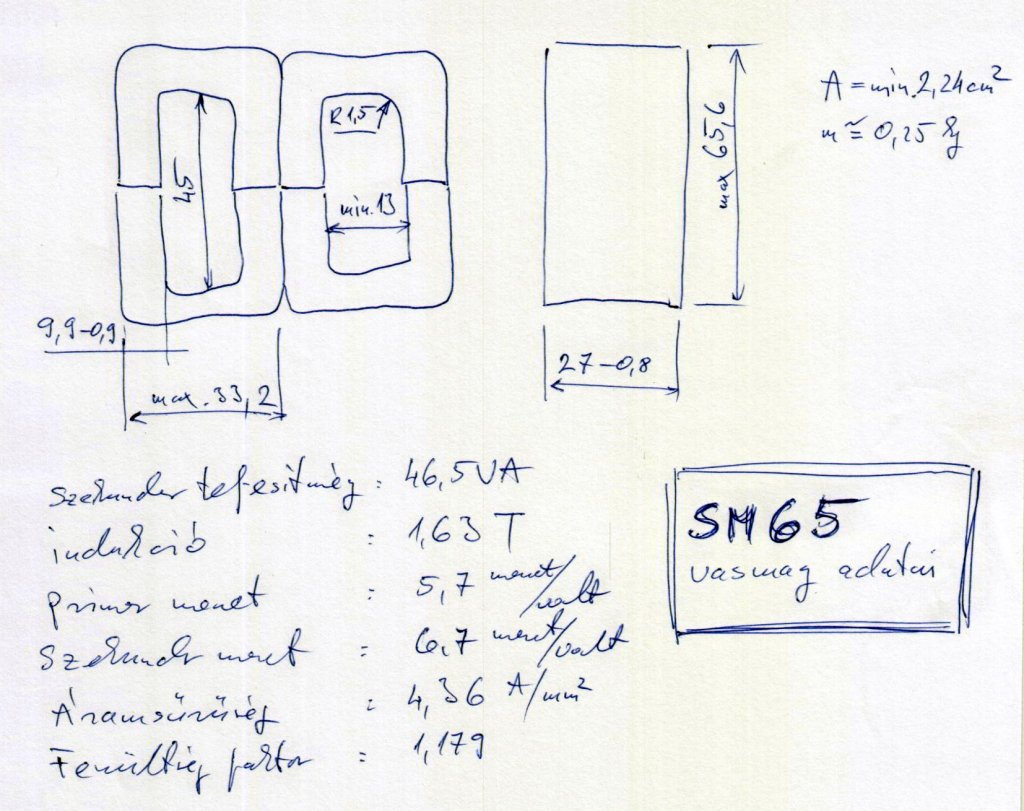 R1,5
45
min.13
9,9-0,9
max.33,2
max 65,6
27-0,8
A = min.2,24cm²
m ≅ 0,25 kg
szekunder teljesítmény : 46,5VA
indukció : 1,63 T
primer menet : 5,7 menet/volt
szekunder menet : 6,7 menet/volt
Áramsűrűség : 4,36 A/mm²
Feszültség faktor : 1,179
SM65
vasmag adatai